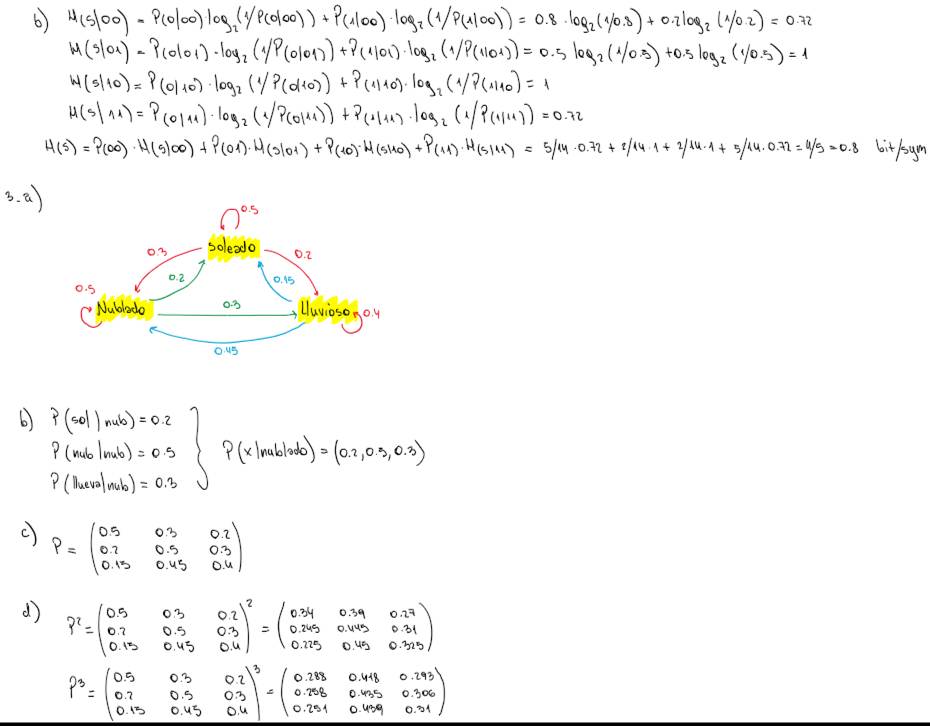 b) H(S|00) = P(0|00)·log₂(1/P(0|00)) + P(1|00)·log₂(1/P(1|00)) = 0.8·log₂(1/0.8) + 0.2log₂(1/0.2) = 0.72
H(S|01) = P(0|01)·log₂(1/P(0|01)) + P(1|01)·log₂(1/P(1|01)) = 0.5 log₂(1/0.5) + 0.5 log₂(1/0.5) = 1
H(S|10) = P(0|10)·log₂(1/P(0|10)) + P(1|10)·log₂(1/P(1|10)) = 1
H(S|11) = P(0|11)·log₂(1/P(0|11)) + P(1|11)·log₂(1/P(1|11)) = 0.72
H(S) = P(00)·H(S|00) + P(01)·H(S|01) + P(10)·H(S|10) + P(11)·H(S|11) = 5/14·0.72 + 2/14·1 + 2/14·1 + 5/14·0.72 = 4/5 = 0.8 bit/sym
3-a)
0.5
Soleado
0.3
0.2
0.2
0.15
0.5
Nublado
0.3
Lluvioso
0.4
0.45
b) P(sol|nub) = 0.2
P(nub|nub) = 0.5
P(x|nublado) = (0.2, 0.5, 0.3)
P(llueva|nub) = 0.3
c) P =
0.5 0.3 0.2
0.2 0.5 0.3
0.15 0.45 0.4
d) P² =
0.5 0.3 0.2 2 = 0.34 0.39 0.27
0.2 0.5 0.3 0.245 0.445 0.31
0.15 0.45 0.4 0.225 0.45 0.325
P³ =
0.5 0.3 0.2 3 = 0.288 0.418 0.293
0.2 0.5 0.3 0.258 0.435 0.306
0.15 0.45 0.4 0.251 0.439 0.31